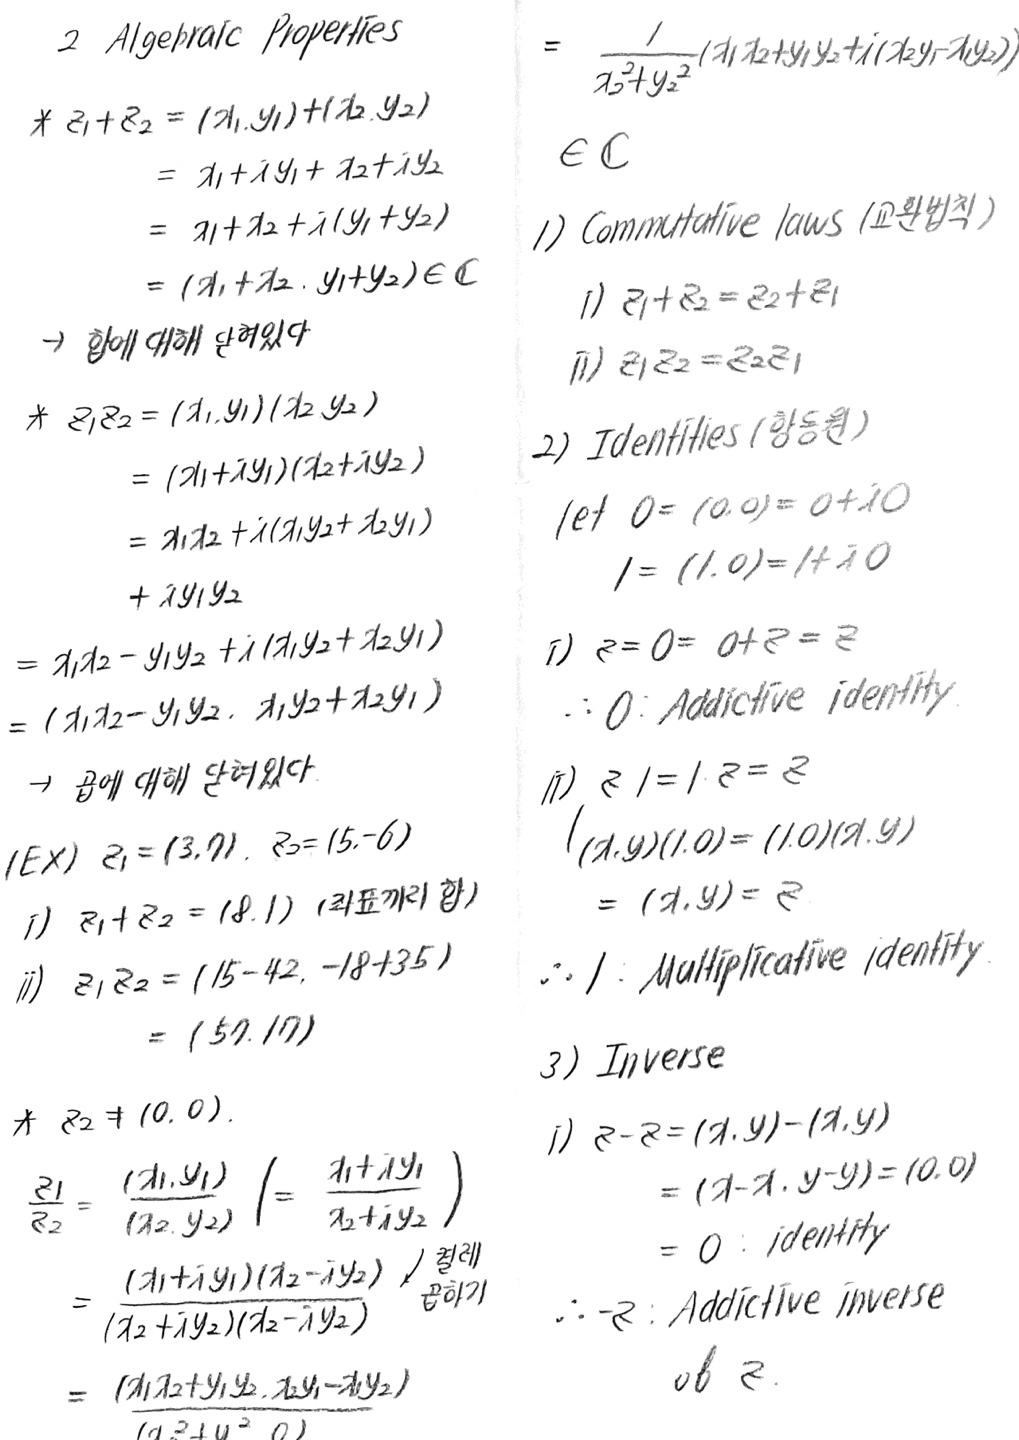 2 Algebraic Properties
* z₁+z₂ = (x₁.y₁)+(x₂.y₂)
= x₁+iy₁+ x₂+iy₂
= x₁+x₂+i(y₁+y₂)
= (x₁+x₂. y₁+y₂)∈ℂ
→ 합에 대해 닫혀있다
* z₁z₂ = (x₁.y₁)(x₂.y₂)
= (x₁+iy₁)(x₂+iy₂)
= x₁x₂+i(x₁y₂+x₂y₁)
+ iy₁y₂
= x₁x₂-y₁y₂+i(x₁y₂+x₂y₁)
= (x₁x₂-y₁y₂. x₁y₂+x₂y₁)
→ 곱에 대해 닫혀있다.
(EX) z₁=(3.7). z₂=(5.-6)
i) z₁+z₂ = (8.1) (좌표끼리 합)
ii) z₁z₂ = (15-42. -18+35)
= (57.17)
* z₂≠(0.0).
z₁/z₂ = (x₁.y₁)/(x₂.y₂) (= x₁+iy₁/x₂+iy₂)
= (x₁+iy₁)(x₂-iy₂)/(x₂+iy₂)(x₂-iy₂) 켤레
곱하기
= (x₁x₂+y₁y₂. x₂y₁-x₁y₂)/(x₂²+y₂². 0)
= 1/x₂²+y₂² (x₁x₂+y₁y₂+i(x₂y₁-x₁y₂))
∈ ℂ
1) Commutative laws (교환법칙)
i) z₁+z₂=z₂+z₁
ii) z₁z₂=z₂z₁
2) Identities (항등원)
let 0= (0.0)= 0+i0
1= (1.0)=1+i0
i) z=0= 0+z = z
∴ 0: Addictive identity.
ii) z 1=1·z= z
(x.y)(1.0)=(1.0)(x.y)
= (x.y)= z
∴ 1: Multiplicative identity.
3) Inverse
i) z-z=(x.y)-(x.y)
= (x-x. y-y)=(0.0)
= 0 : identity
∴ -z: Addictive inverse
of z.